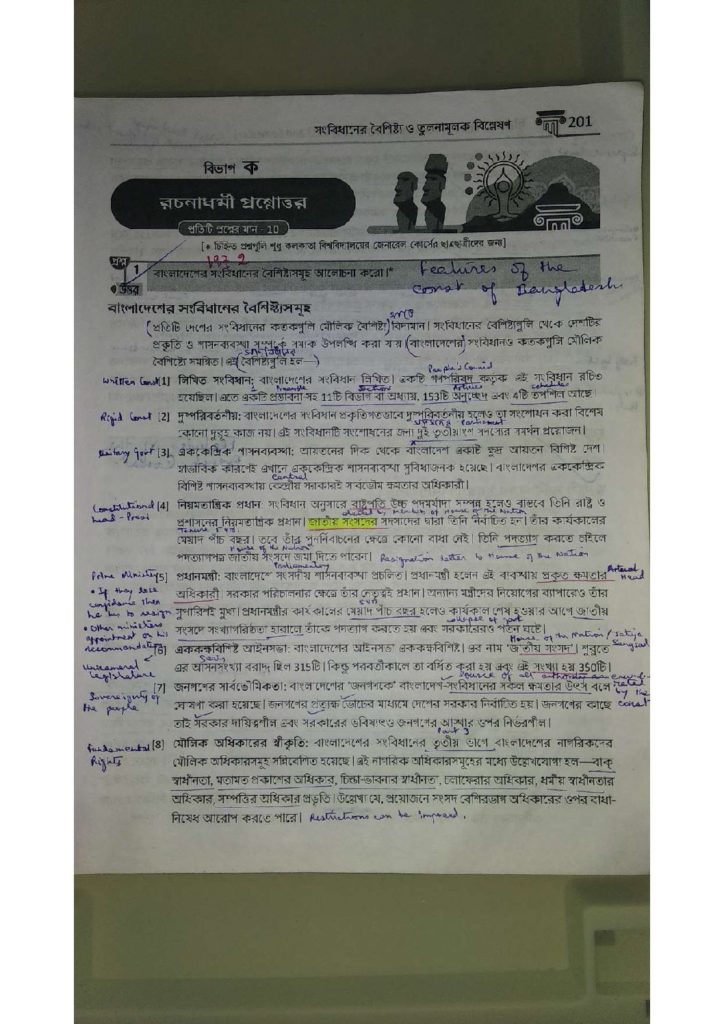 সংবিধানের বৈশিষ্ট্য ও তুলনামূলক বিশ্লেষণ 201
বিভাগ ক
রচনাধর্মী প্রশ্নোত্তর
প্রতিটি প্রশ্নের মান - 10
[* চিহ্নিত প্রশ্নগুলি শুধু কলকাতা বিশ্ববিদ্যালয়ের জেনারেল কোর্সের ছাত্রছাত্রীদের জন্য]
1972
প্রশ্ন 1 বাংলাদেশের সংবিধানের বৈশিষ্ট্যসমূহ আলোচনা করো।* Features of the
উত্তর const of Bangladesh
বাংলাদেশের সংবিধানের বৈশিষ্ট্যসমূহ
প্রতিটি দেশের সংবিধানের কতকগুলি মৌলিক বৈশিষ্ট্য বিদ্যমান। সংবিধানের বৈশিষ্ট্যগুলি থেকে দেশটির
প্রকৃতি ও শাসনব্যবস্থা সম্পর্কে সম্যক উপলব্ধি করা যায় (বাংলাদেশের) সংবিধানও কতকগুলি মৌলিক
বৈশিষ্ট্যে সমন্বিত। এই বৈশিষ্ট্যগুলি হল—
People's Council
Written Const [1] লিখিত সংবিধান: বাংলাদেশের সংবিধান লিখিত। একটি গণপরিষদ কর্তৃক এই সংবিধান রচিত
Preamble Section Articles schedules
হয়েছিল। এতে একটি প্রস্তাবনা সহ 11টি বিভাগ বা অধ্যায়, 153টি অনুচ্ছেদ এবং 4টি তপশিল আছে।
Rigid Const [2] দুষ্পরিবর্তনীয়: বাংলাদেশের সংবিধান প্রকৃতিগতভাবে দুষ্পরিবর্তনীয় হলেও তা সংশোধন করা বিশেষ
কোনো দুরূহ কাজ নয়। এই সংবিধানটি সংশোধনের জন্য দুই তৃতীয়াংশ সদস্যের সমর্থন প্রয়োজন।
Unitary Govt [3] এককেন্দ্রিক শাসনব্যবস্থা: আয়তনের দিক থেকে বাংলাদেশ একটি ক্ষুদ্র আয়তন বিশিষ্ট দেশ।
স্বাভাবিক কারণেই এখানে এককেন্দ্রিক শাসনব্যবস্থা সুবিধাজনক হয়েছে। বাংলাদেশের এককেন্দ্রিক
Central
বিশিষ্ট শাসনব্যবস্থায় কেন্দ্রীয় সরকারই সর্বোচ্চ ক্ষমতার অধিকারী।
Constitutional [4] নিয়মতান্ত্রিক প্রধান: সংবিধান অনুসারে রাষ্ট্রপতি উচ্চ পদমর্যাদা সম্পন্ন হলেও বাস্তবে তিনি রাষ্ট্র ও
elected by members of House of the Nation
head - Presi প্রশাসনের নিয়মতান্ত্রিক প্রধান। জাতীয় সংসদের সদস্যদের দ্বারা তিনি নির্বাচিত হন। তাঁর কার্যকালের
Tenure 5 yrs.
মেয়াদ পাঁচ বছর। তবে তাঁর পুনর্নির্বাচনের ক্ষেত্রে কোনো বাধা নেই। তিনি পদত্যাগ করতে চাইলে
House of the Nation
পদত্যাগপত্র জাতীয় সংসদে জমা দিতে পারেন। Resignation letter to House of the Nation
Parliamentary
Prime Minister [5] প্রধানমন্ত্রী: বাংলাদেশে সংসদীয় শাসনব্যবস্থা প্রচলিত। প্রধানমন্ত্রী হলেন এই ব্যবস্থায় প্রকৃত ক্ষমতার Head
• If they lose অধিকারী সরকার পরিচালনার ক্ষেত্রে তাঁর নেতৃত্বই প্রধান। অন্যান্য মন্ত্রীদের নিয়োগের ব্যাপারেও তাঁর
5 yrs
confidence then সুপারিশই মুখ্য। প্রধানমন্ত্রীর কার্যকালের মেয়াদ পাঁচ বছর হলেও কার্যকাল শেষ হওয়ার আগে জাতীয়
he has to resign collapse of govt
• Other ministers সংসদে সংখ্যাগরিষ্ঠতা হারালে তাঁকে পদত্যাগ করতে হয় এবং সরকারেরও পতন ঘটে।
appointment on his House of the Nation / Jatiya Sangsad
recommendation [6] এককক্ষবিশিষ্ট আইনসভা: বাংলাদেশের আইনসভা এককক্ষবিশিষ্ট। এর নাম 'জাতীয় সংসদ'। শুরুতে
Unicameral legislature এর আসনসংখ্যা বরাদ্দ ছিল 315টি। কিন্তু পরবর্তীকালে তা বর্ধিত করা হয় এবং এই সংখ্যা হয় 350টি।
Source of all
Sovereignty of [7] জনগণের সার্বভৌমিকতা: বাংলাদেশের 'জনগণকে' বাংলাদেশ-সংবিধানের সকল ক্ষমতার উৎস বলে by the
the people ঘোষণা করা হয়েছে। জনগণের প্রত্যক্ষ ভোটের মাধ্যমে দেশের সরকার নির্বাচিত হয়। জনগণের কাছে const
তাই সরকার দায়িত্বশীল এবং সরকারের ভবিষ্যৎও জনগণের আস্থার ওপর নির্ভরশীল।
Part 3
Fundamental [8] মৌলিক অধিকারের স্বীকৃতি: বাংলাদেশের সংবিধানের তৃতীয় ভাগে বাংলাদেশের নাগরিকদের
Rights মৌলিক অধিকারসমূহ সন্নিবেশিত হয়েছে। এই নাগরিক অধিকারসমূহের মধ্যে উল্লেখযোগ্য হল—বাক্
স্বাধীনতা, মতামত প্রকাশের অধিকার, চিন্তা-ভাবনার স্বাধীনতা, চলাফেরার অধিকার, ধর্মীয় স্বাধীনতার
অধিকার, সম্পত্তির অধিকার প্রভৃতি। উল্লেখ্য যে, প্রয়োজনে সংসদ বেশিরভাগ অধিকারের ওপর বাধা-
নিষেধ আরোপ করতে পারে। Restrictions can be imposed.